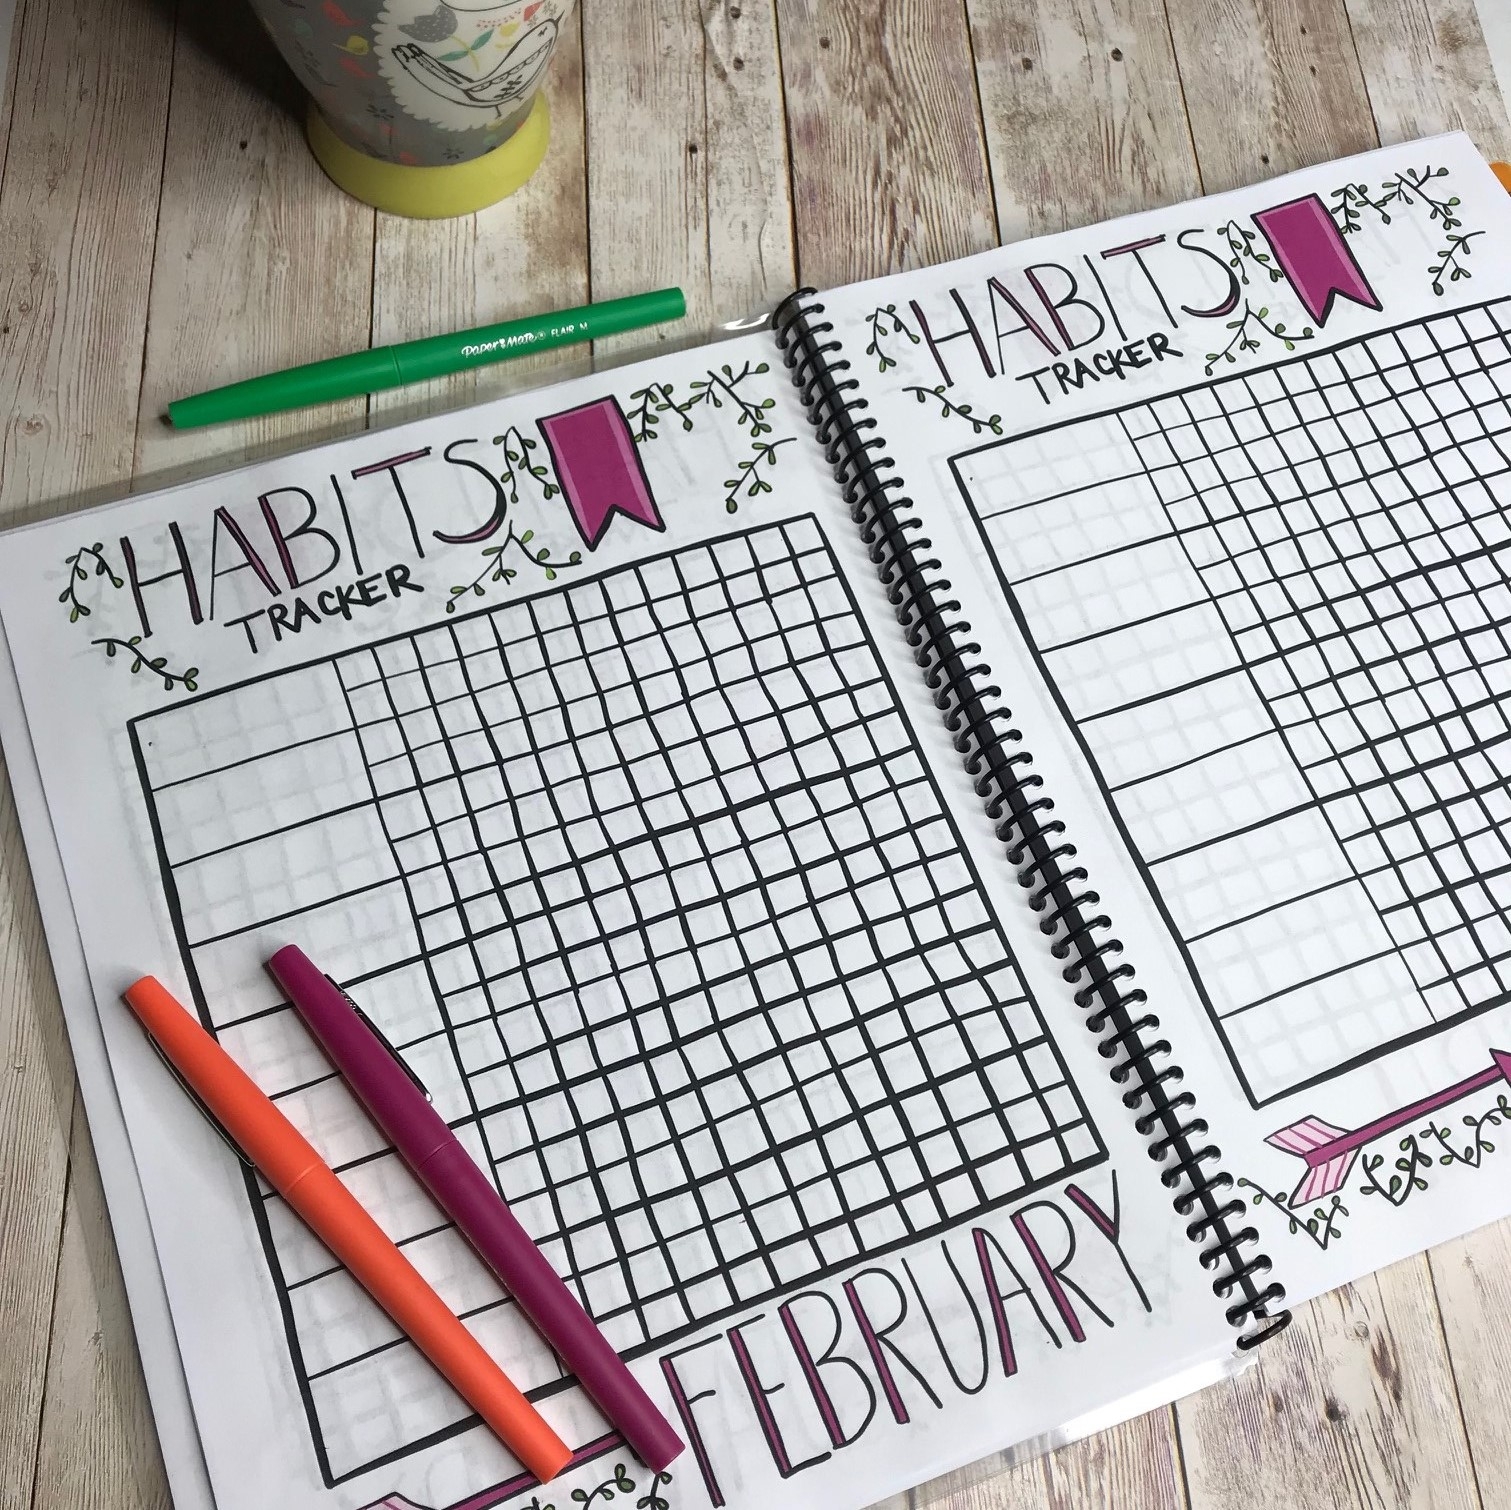 Paper Mate® FLAIR M
HABITS
TRACKER
FEBRUARY
HABITS
TRACKER